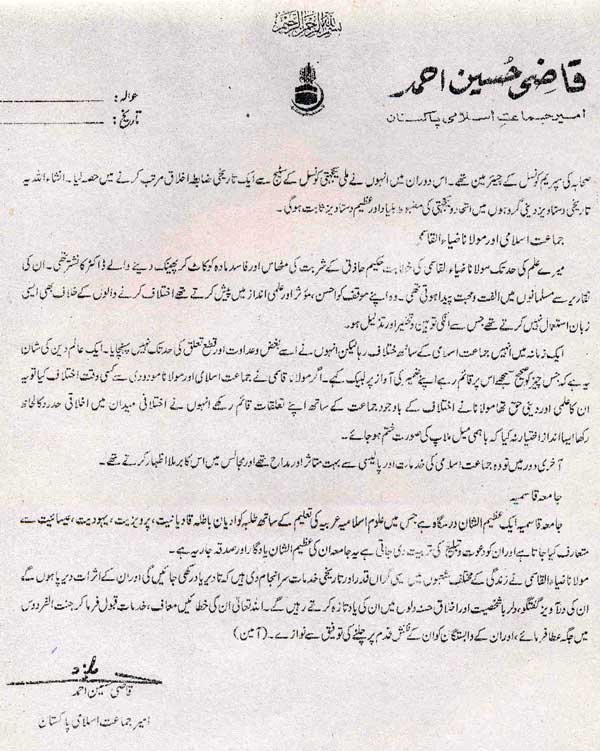 بسم اللہ الرحمٰن الرحیم
قاضی حسین احمد
امیر جماعت اسلامی پاکستان
حوالہ:
تاریخ:
صحابہ کی سپریم کونسل کے چیئرمین تھے۔ اس دوران میں انہوں نے ملی یکجہتی کونسل کے سٹیج سے ایک تاریخی ضابطہ اخلاق مرتب کرنے میں حصہ لیا۔ انشاء اللہ یہ
تاریخی دستاویز دینی گروہوں میں اتحاد و یکجہتی کی مضبوط بنیاد اور عظیم دستاویز ثابت ہوگی۔
جماعت اسلامی اور مولانا ضیاء القاسمی
میرے علم کی حد تک مولانا ضیاء القاسمی کی خطابت حکیم حاذق کے شربت کی مٹھاس اور فاسد مادہ کو کاٹ کر پھینک دینے والے ڈاکٹر کا نشتر تھی۔ ان کی
تقاریر سے مسلمانوں میں الفت و محبت پیدا ہوتی تھی۔ وہ اپنے موقف کو احسن، مؤثر اور علمی انداز میں پیش کرتے تھے اختلاف کرنے والوں کے خلاف بھی ایسی
زبان استعمال نہیں کرتے تھے جس سے انکی توہین و تحقیر اور تذلیل ہو۔
ایک زمانہ میں انہیں جماعت اسلامی کے ساتھ اختلاف رہا لیکن انہوں نے اسے بغض و عداوت اور قطع تعلق کی حد تک نہیں پہنچایا۔ ایک عالم دین کی شان
یہ ہے کہ جس چیز کو صحیح سمجھے اس پر قائم رہے اپنے ضمیر کی آواز پر لبیک کہے۔ اگر مولانا قاسمی نے جماعت اسلامی اور مولانا مودودی سے کسی وقت اختلاف کیا تو یہ
ان کا علمی اور دینی حق تھا مولانا نے اختلاف کے باوجود جماعت کے ساتھ اپنے تعلقات قائم رکھے انہوں نے اختلافی میدان میں اخلاقی حدود کا لحاظ
رکھا ایسا انداز اختیار نہ کیا کہ باہمی میل ملاپ کی صورت ختم ہو جائے۔
آخری دور میں تو وہ جماعت اسلامی کی خدمات اور پالیسی سے بہت متاثر اور مداح تھے اور مجالس میں اس کا برملا اظہار کرتے تھے۔
جامعہ قاسمیہ
جامعہ قاسمیہ ایک عظیم الشان درسگاہ ہے جس میں علوم اسلامیہ عربیہ کی تعلیم کے ساتھ طلبہ کو ادیان باطلہ قادیانیت، پرویزیت، یہودیت، عیسائیت سے
متعارف کیا جاتا ہے اور ان کو دعوت و تبلیغ کی تربیت دی جاتی ہے یہ جامعہ ان کی عظیم الشان یادگار اور صدقہ جاریہ ہے۔
مولانا ضیاء القاسمی نے زندگی کے مختلف شعبوں میں ایسی گراں قدر اور تاریخی خدمات سرانجام دی ہیں کہ تادیر یاد رکھی جائیں گی اور ان کے اثرات دیرپا ہوں گے
ان کی دل آویز گفتگو، دلربا شخصیت اور اخلاق حسنہ دلوں میں ان کی یاد تازہ کرتے رہیں گے۔ اللہ تعالیٰ ان کی خطائیں معاف، خدمات قبول فرما کر جنت الفردوس
میں جگہ عطا فرمائے، اور ان کے وابستگان کو ان کے نقش قدم پر چلنے کی توفیق سے نوازے۔ (آمین)
قاضی حسین احمد
امیر جماعت اسلامی پاکستان